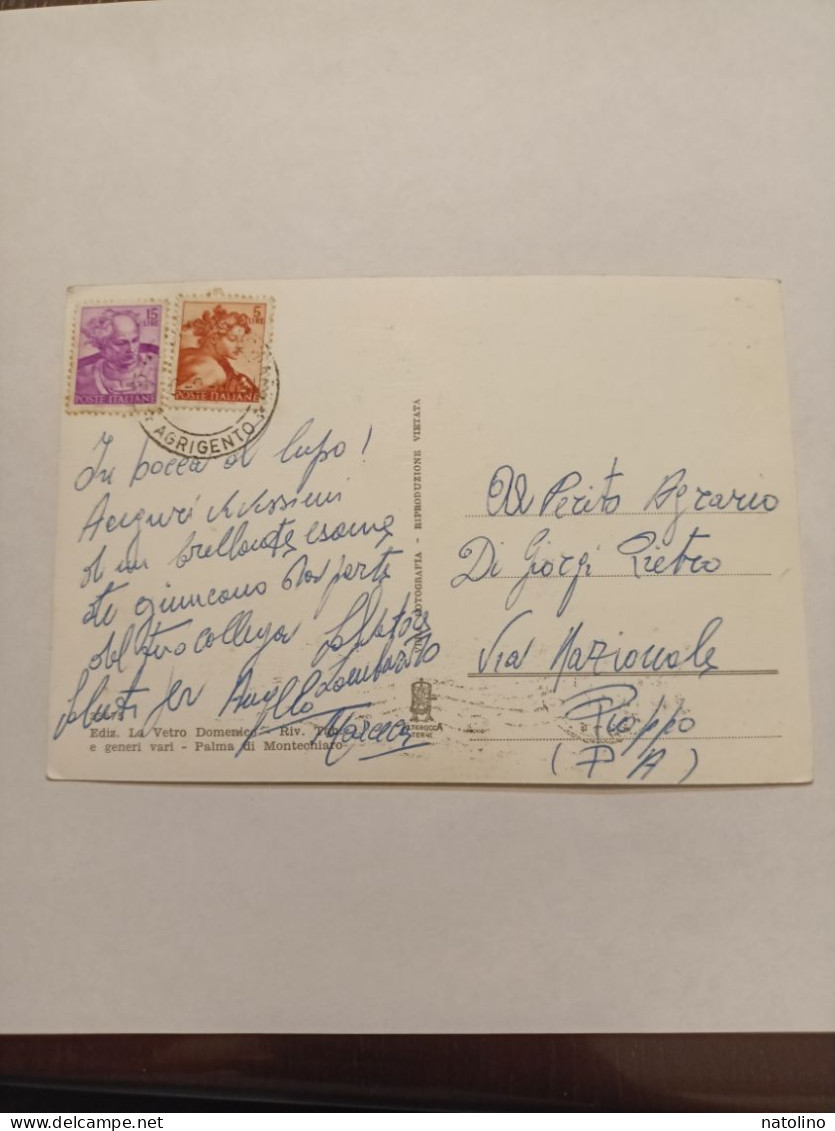 15
LIRE
POSTE ITALIANE
5
LIRE
POSTE ITALIANE
AGRIGENTO
In bocca al lupo!
Auguri vivissimi
di un brillante esame
ti giungano da parte
del tuo collega Salvatore
Lombardo
Saluti per
Ediz. La Vetro Domenico - Riv.
e generi vari - Palma di Montechiaro
FOTOGRAFIA - RIPRODUZIONE VIETATA
Al Perito Agrario
Di Giorgi Pietro
Via Nazionale
Pioppo
(PA)
natolino